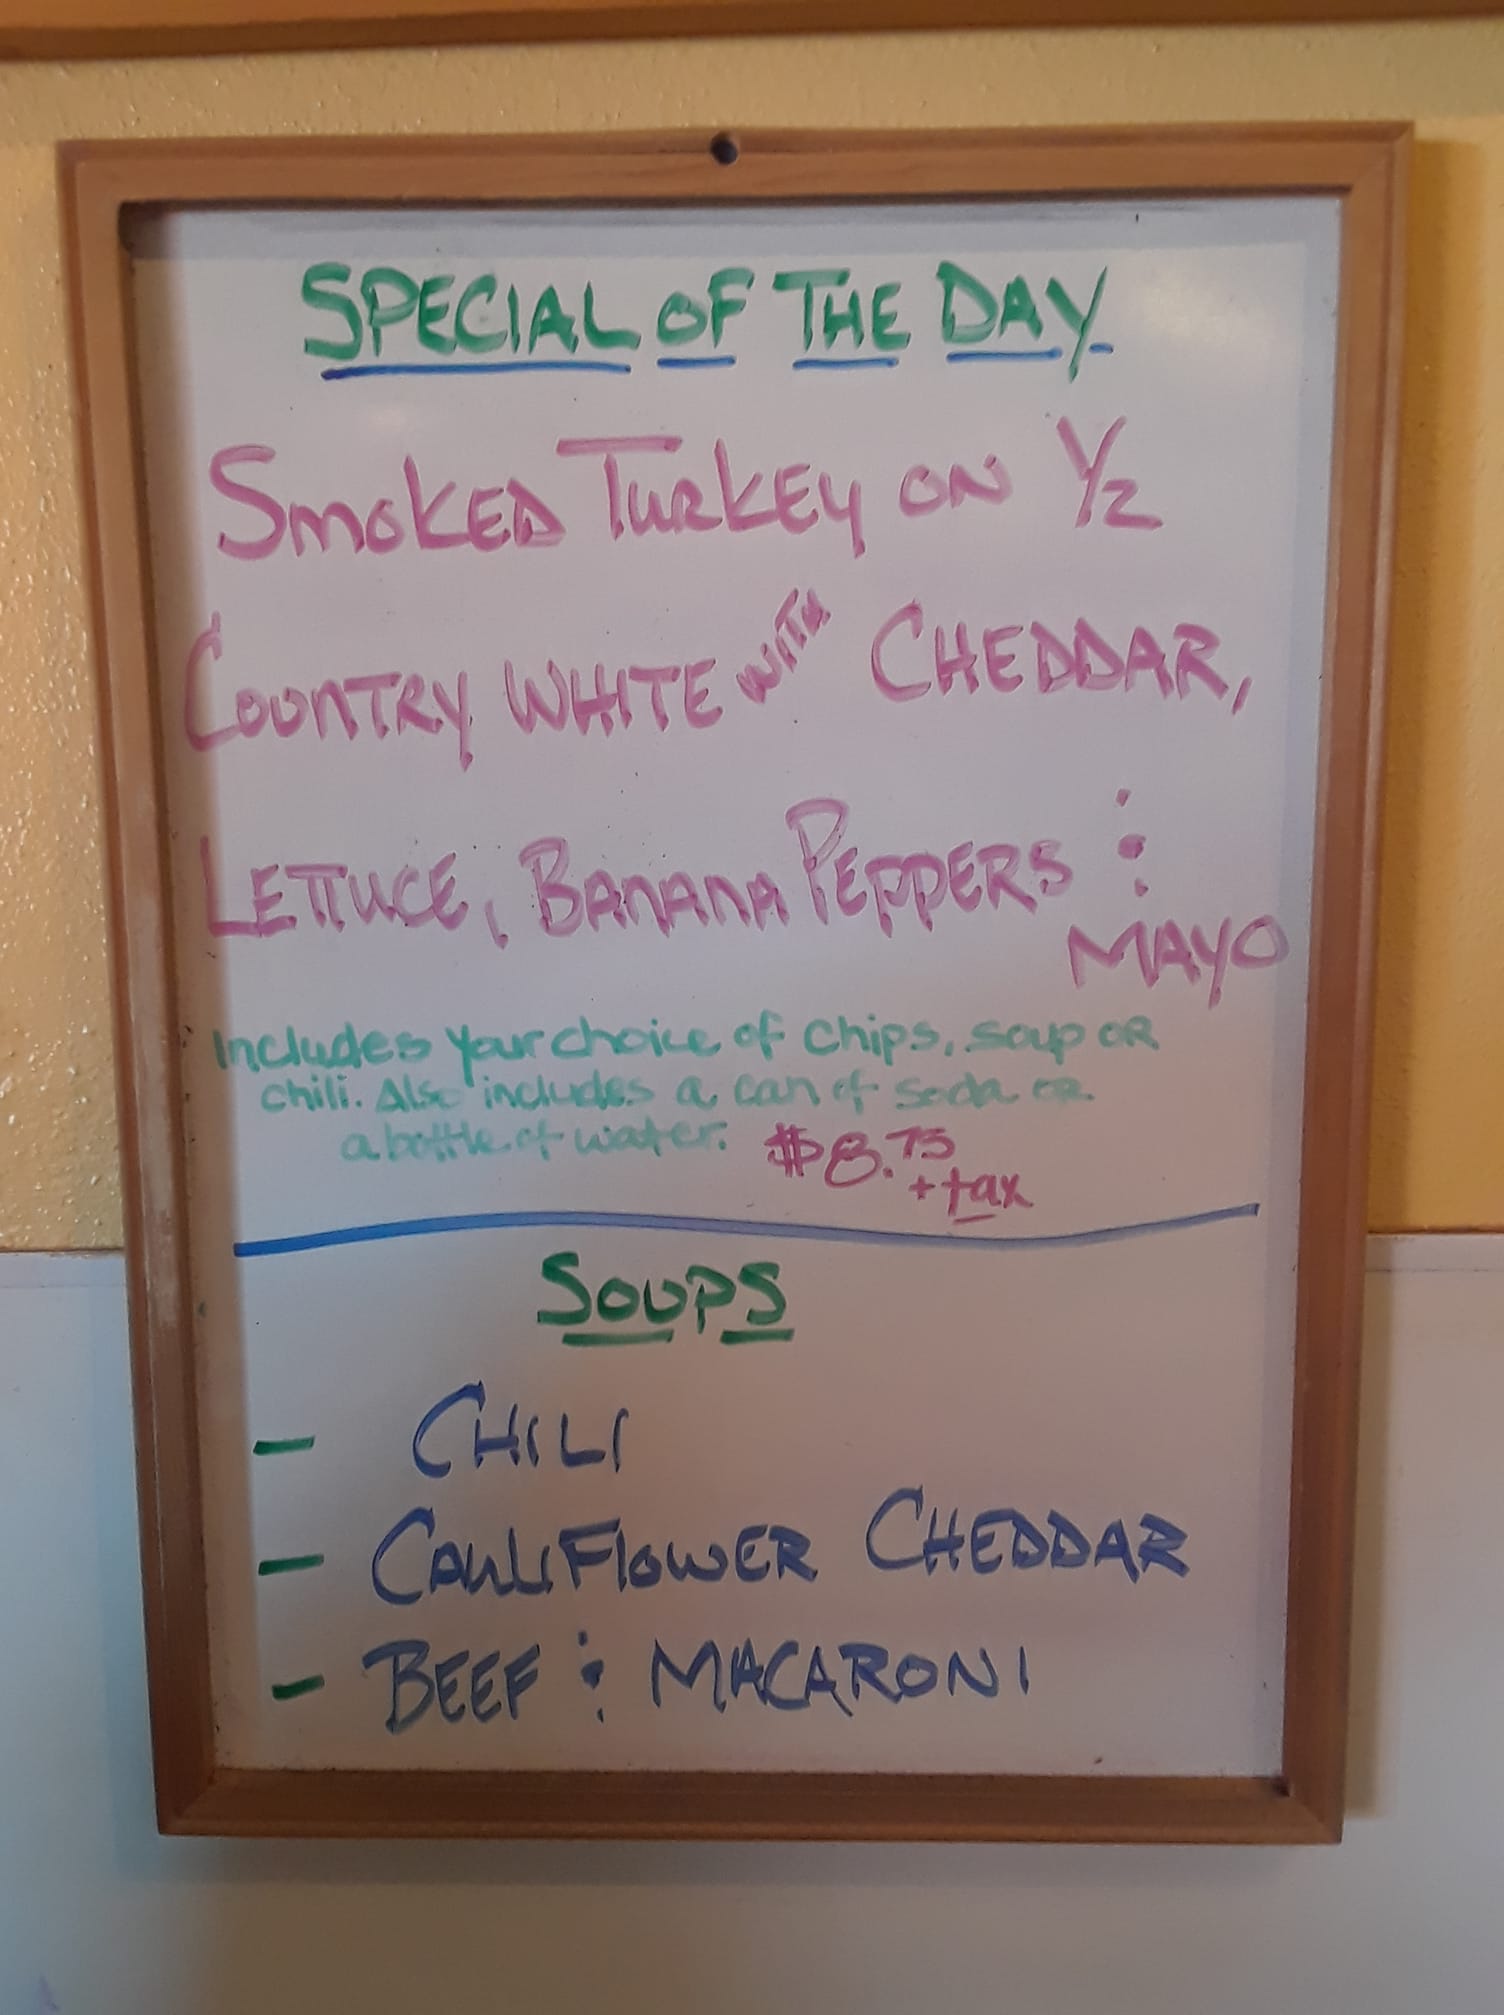 SPECIAL OF THE DAY
SMOKED TURKEY ON 1/2
COUNTRY WHITE WITH CHEDDAR,
LETTUCE, BANANA PEPPERS &
MAYO
Includes your choice of chips, soup or
chili. Also includes a can of soda or
a bottle of water. $8.75
+ tax
SOUPS
- CHILI
- CAULIFLOWER CHEDDAR
- BEEF & MACARONI